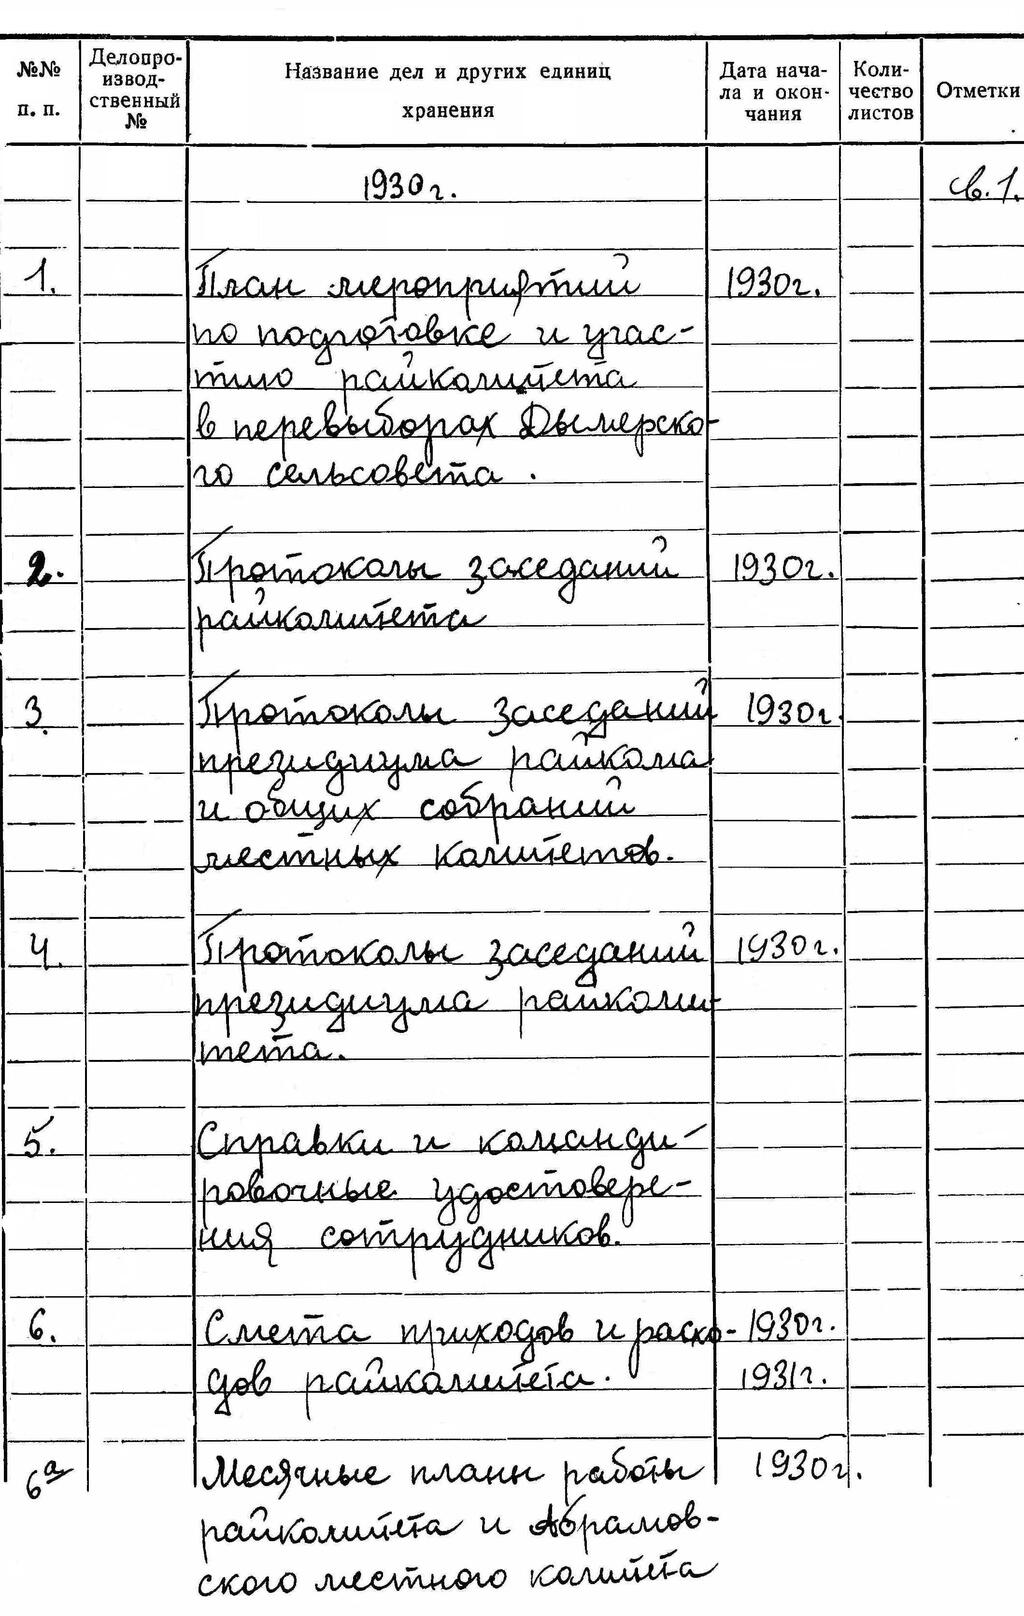 №№ п. п.
Делопро-
извод-
ственный
№
Название дел и других единиц
хранения
Дата нача-
ла и окон-
чания
Коли-
чество
листов
Отметки
1930г.
св.1.
1. План мероприятий 1930г.
по подготовке и учас-
тию райкомитета
в перевыборах Дымерско-
го сельсовета.
2. Протоколы заседаний 1930г.
райкомитета
3. Протоколы заседаний 1930г.
президиума райкома
и общих собраний
местных комитетов.
4. Протоколы заседаний 1930г.
президиума райкоми-
тета.
5. Справки и команди-
ровочные удостовере-
ния сотрудников.
6. Смета приходов и расхо- 1930г.
дов райкомитета. 1931г.
6а Месячные планы работы 1930г.
райкомитета и Абрамов-
ского местного комитета